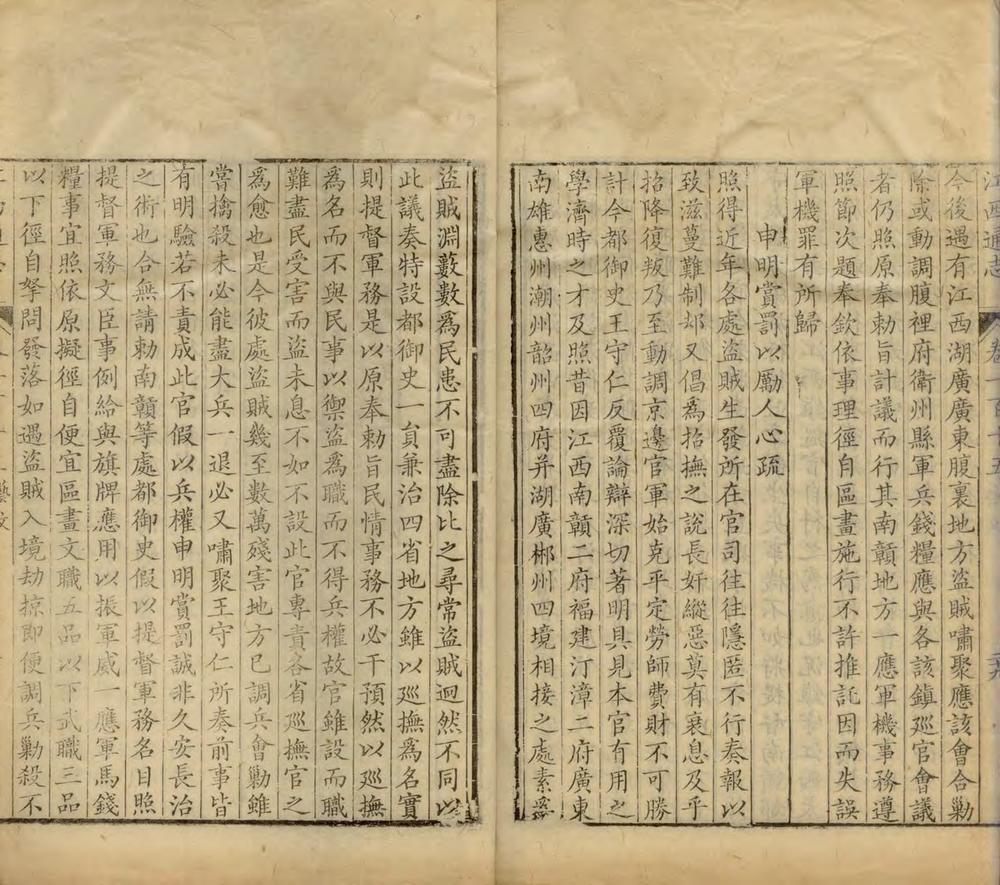 江西通志
今後遇有江西湖廣廣東腹裏地方盜賊嘯聚應該會合勦
除或動調腹裡府衛州縣軍兵錢糧應與各該鎮廵官會議
者仍照原奉勅旨計議而行其南贛地方一應軍機事務遵
照節次題奉欽依事理徑自區畫施行不許推託因而失誤
軍機罪有所歸
申明賞罰以勵人心疏
照得近年各處盜賊生發所在官司往往隱匿不行奏報以
致滋蔓難制却又倡爲招撫之說長奸縱惡莫有衰息及乎
招降復叛乃至動調京邊官軍始克平定勞師費財不可勝
計今都御史王守仁反覆論辯深切著明具見本官有用之
學濟時之才及照昔因江西南贛二府福建汀漳二府廣東
南雄惠州潮州韶州四府并湖廣郴州四境相接之處素爲
盜賊淵藪數爲民患不可盡除比之尋常盜賊迥然不同以
此議奏特設都御史一員兼治四省地方雖以廵撫爲名實
則提督軍務是以原奉勅旨民情事務不必干預然以廵撫
爲名而不與民事以禦盜爲職而不得兵權故官雖設而職
難盡民受害而盜未息不如不設此官專責各省廵撫官之
爲愈也是今彼處盜賊幾至數萬殘害地方已調兵會勦雖
嘗擒殺未必能盡大兵一退必又嘯聚王守仁所奏前事皆
有明驗若不責成此官假以兵權申明賞罰誠非久安長治
之術也合無請勅南贛等處都御史假以提督軍務名目照
提督軍務文臣事例給與旗牌應用以振軍威一應軍馬錢
糧事宜照依原擬徑自便宜區畫文職五品以下武職三品
以下徑自拏問發落如遇盜賊入境劫掠即便調兵勦殺不